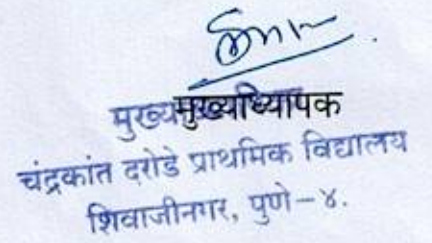 मुख्याध्यापक
चंद्रकांत दरोडे प्राथमिक विद्यालय
शिवाजीनगर, पुणे-४.